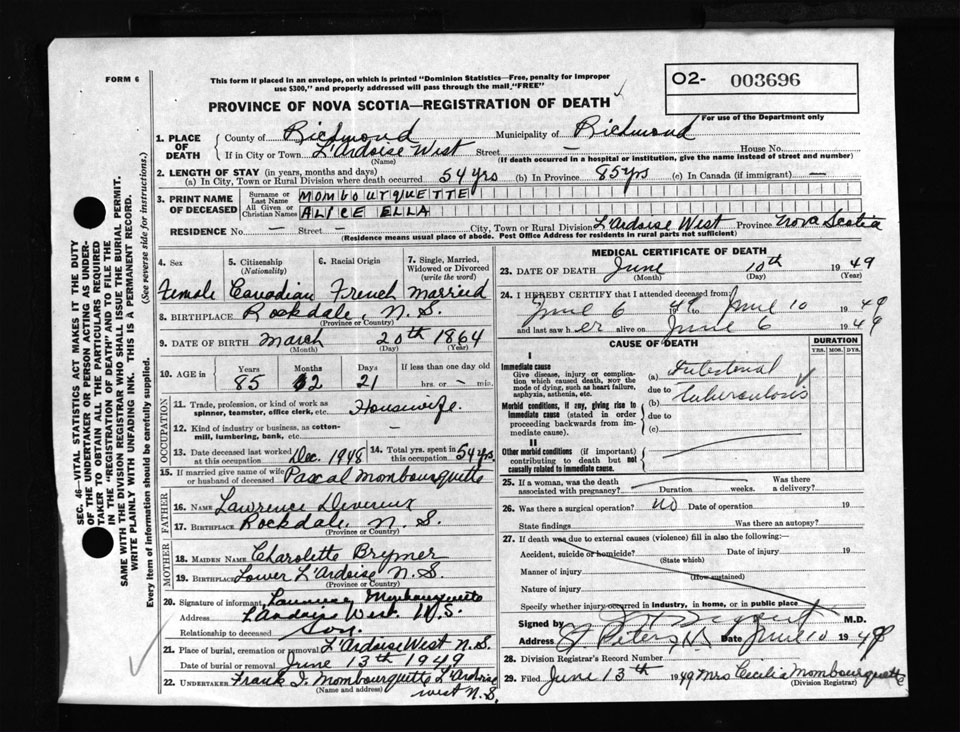 FORM 6
This form if placed in an envelope, on which is printed "Dominion Statistics—Free, penalty for improper
use $300," and properly addressed will pass through the mail "FREE"
O2- 003696
For use of the Department only
PROVINCE OF NOVA SCOTIA—REGISTRATION OF DEATH
SEC. 46—VITAL STATISTICS ACT MAKES IT THE DUTY
OF THE UNDERTAKER OR PERSON ACTING AS UNDER-
TAKER TO OBTAIN ALL THE PARTICULARS REQUIRED
IN THE "REGISTRATION OF DEATH" AND TO FILE THE
SAME WITH THE DIVISION REGISTRAR WHO SHALL ISSUE THE BURIAL PERMIT.
WRITE PLAINLY WITH UNFADING INK. THIS IS A PERMANENT RECORD.
Every item of information should be carefully supplied. (See reverse side for instructions.)
1. PLACE OF DEATH
County of Richmond Municipality of Richmond
If in City or Town L'Ardoise West Street — House No.
(Name) (If death occurred in a hospital or institution, give the name instead of street and number)
2. LENGTH OF STAY (in years, months and days)
(a) In City, Town or Rural Division where death occurred 54 yrs (b) In Province 85 yrs (c) In Canada (if immigrant) —
3. PRINT NAME OF DECEASED
Surname or Last Name MOMBOURQUETTE
All Given or Christian Names ALICE ELLA
RESIDENCE No. — Street — City, Town or Rural Division L'Ardoise West Province Nova Scotia
(Residence means usual place of abode. Post Office Address for residents in rural parts not sufficient)
4. Sex 5. Citizenship (Nationality) 6. Racial Origin 7. Single, Married, Widowed or Divorced (write the word)
Female Canadian French Married
8. BIRTHPLACE Rockdale, N. S.
(Province or Country)
9. DATE OF BIRTH March 20th 1864
(Month) (Day) (Year)
10. AGE in Years Months Days If less than one day old
85 2 21 hrs. or — min.
OCCUPATION
11. Trade, profession, or kind of work as
spinner, teamster, office clerk, etc. Housewife.
12. Kind of industry or business, as cotton-
mill, lumbering, bank, etc. —
13. Date deceased last worked at this occupation Dec. 1948 14. Total yrs. spent in this occupation 54 yrs.
15. If married give name of wife
or husband of deceased Pascal Mombourquette
FATHER
16. NAME Lawrence Devereux
17. BIRTHPLACE Rockdale, N. S.
(Province or Country)
MOTHER
18. MAIDEN NAME Charolette Brymer
19. BIRTHPLACE Lower L'Ardoise N. S.
(Province or Country)
20. Signature of informant Mombourquette
Address L'Ardoise West. N. S.
Relationship to deceased Son.
21. Place of burial, cremation or removal L'Ardoise West N. S.
Date of burial or removal June 13th 1949
22. UNDERTAKER Frank I. Mombourquette L'Ardoise
(Name and address) West N. S.
MEDICAL CERTIFICATE OF DEATH
23. DATE OF DEATH June 10th 1949
(Month) (Day) (Year)
24. I HEREBY CERTIFY that I attended deceased from
June 6 1949 to June 10 1949
and last saw her alive on June 6 1949
CAUSE OF DEATH DURATION
YRS. MOS. DYS.
I
Immediate cause
Give disease, injury or complica-
tion which caused death, NOT the
mode of dying, such as heart failure,
asphyxia, asthenia, etc.
(a) Intestinal
due to tuberculosis
Morbid conditions, if any, giving rise to
immediate cause (stated in order
proceeding backwards from im-
mediate cause).
(b)
due to
(c)
II
Other morbid conditions (if important)
contributing to death but not
causally related to immediate cause.
25. If a woman, was the death Was there
associated with pregnancy? Duration weeks. a delivery?
26. Was there a surgical operation? NO Date of operation 19
State findings Was there an autopsy?
27. If death was due to external causes (violence) fill in also the following:—
Accident, suicide or homicide? Date of injury 19
(State which)
Manner of injury
(How sustained)
Nature of injury
Specify whether injury occurred in industry, in home, or in public place
Signed by M.D.
Address St. Peters, N.S. Date June 10 1949
28. Division Registrar's Record Number
29. Filed June 13th 1949 Mrs Cecilia Mombourquette
(Division Registrar)